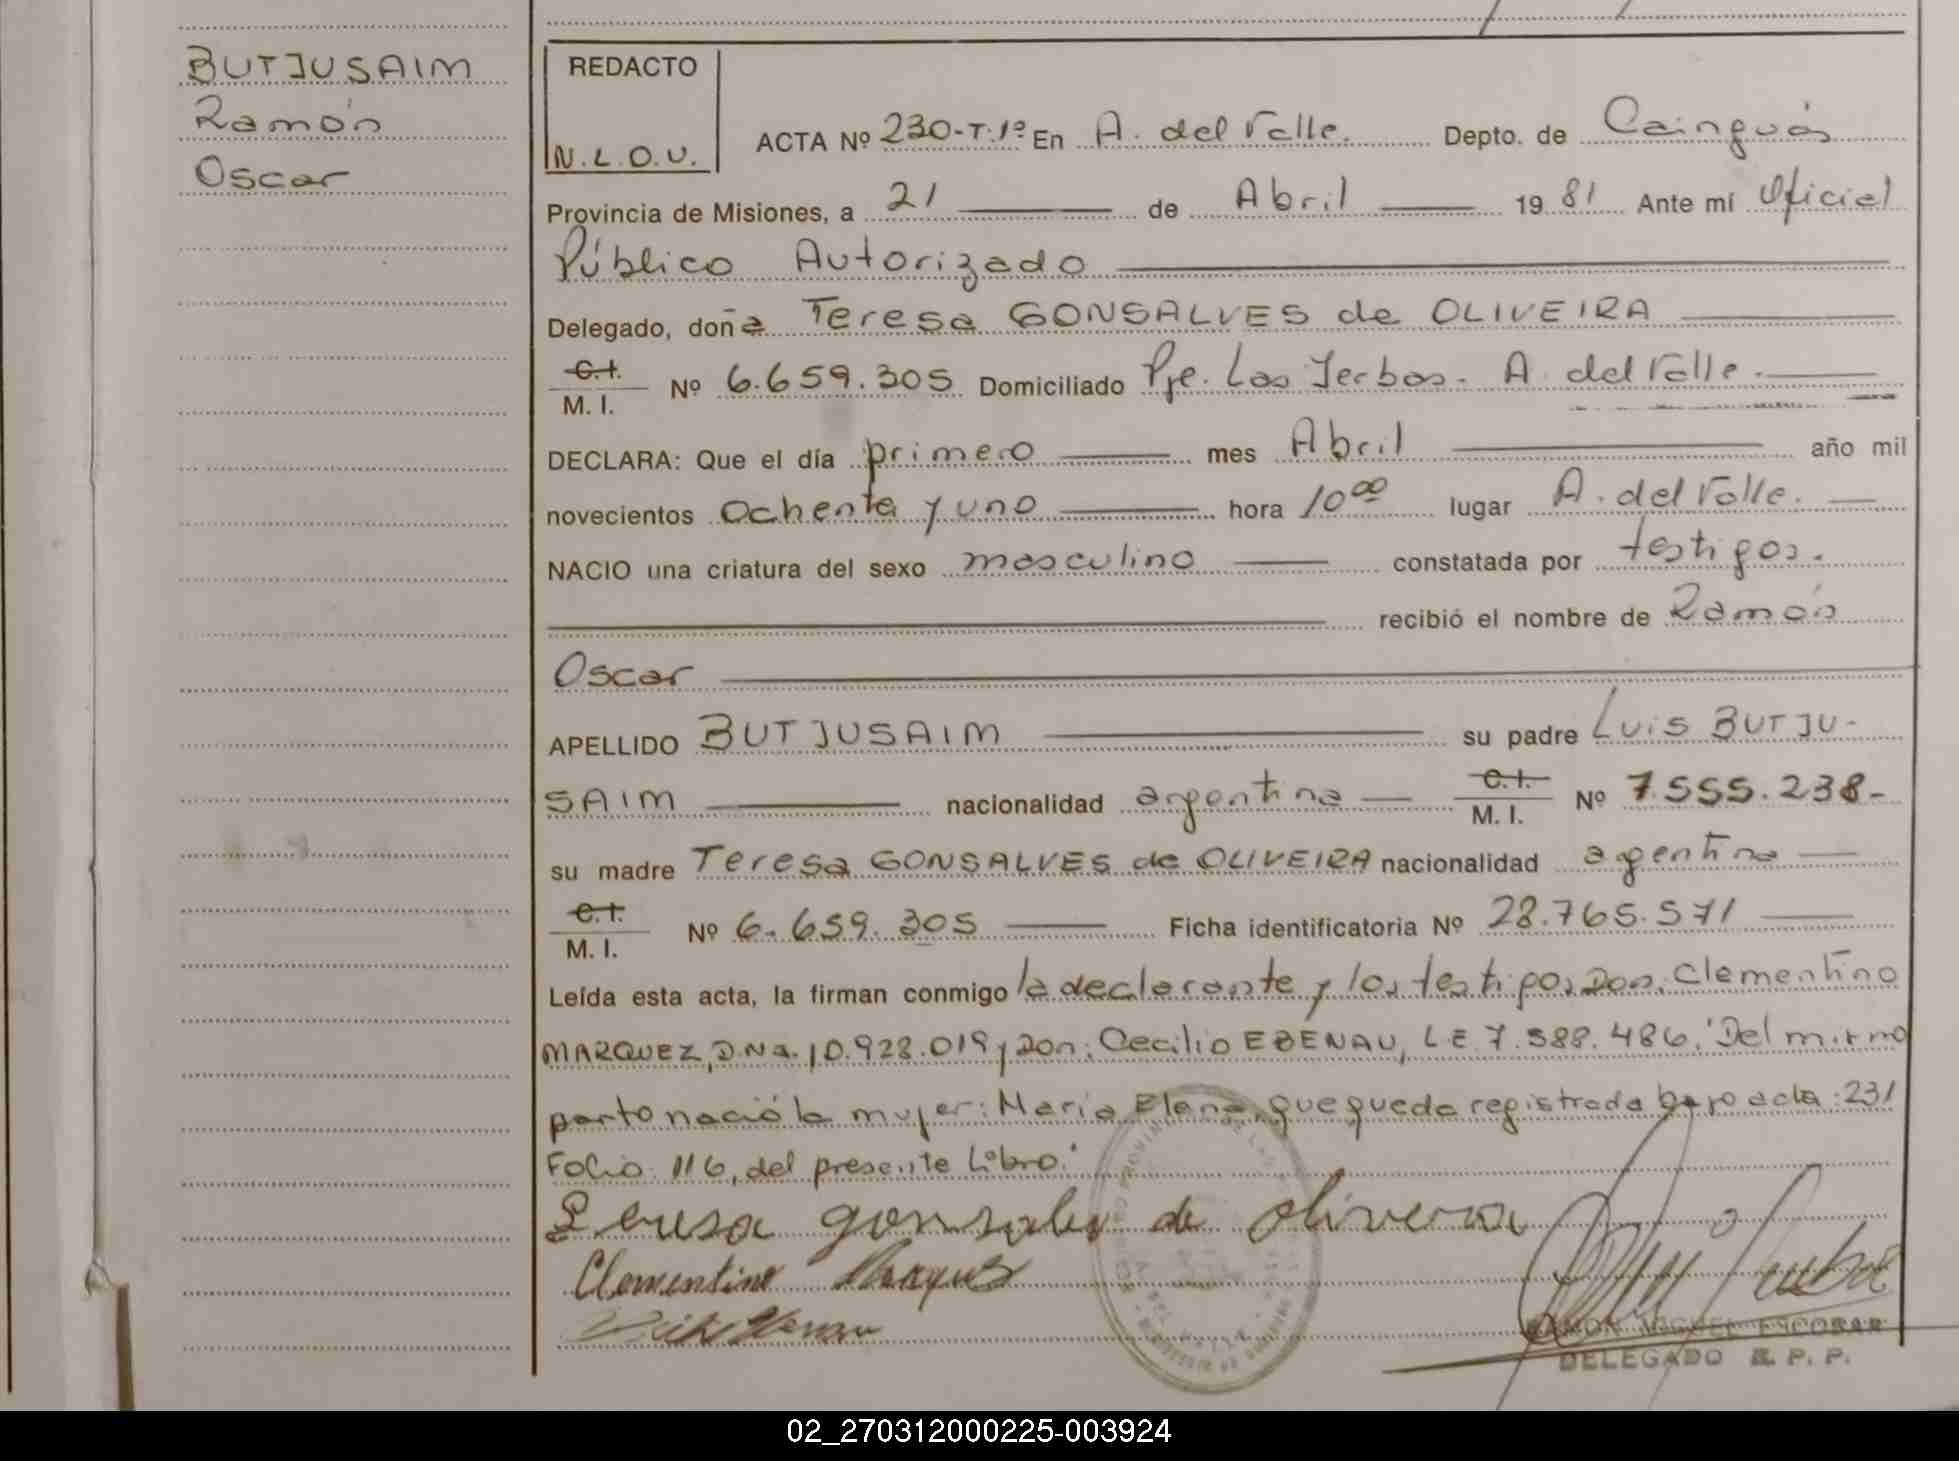 BUTJUSAIM
Ramón
Oscar
REDACTO
N.L.O.V.
ACTA Nº 230-T.1º En A. del Valle. Depto. de Cainguás
Provincia de Misiones, a 21 de Abril 1981 Ante mí Oficial
Público Autorizado
Delegado, doña Teresa GONSALVES de OLIVEIRA
C.I.
M. I. Nº 6.659.305 Domiciliado Pje. Las Yerbas. A. del Valle.
DECLARA: Que el día primero mes Abril año mil
novecientos ochenta y uno hora 10⁰⁰ lugar A. del Valle.
NACIO una criatura del sexo masculino constatada por testigos.
recibió el nombre de Ramón
Oscar
APELLIDO BUTJUSAIM su padre Luis BUTJU-
SAIM nacionalidad argentina C.I. M. I. Nº 7.555.238-
su madre Teresa GONSALVES de OLIVEIRA nacionalidad argentina
C.I.
M. I. Nº 6.659.305 Ficha identificatoria Nº 28.765.571
Leída esta acta, la firman conmigo la declarante y los testigos Don: Clementino
MARQUEZ, D.N.I. 10.928.019 y Don: Cecilio EBENAU, L.E. 7.588.486. "Del mismo
parto nació la mujer: María Elena, que queda registrada bajo acta: 231
Folio: 116, del presente Libro."
Teresa gonsalves de olivera
Clementino Marquez
RAMON MIGUEL ESCOBAR
DELEGADO R. P. P.
02_270312000225-003924